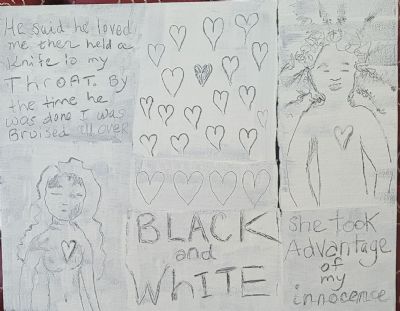 He said he loved
me then held a
knife to my
THROAT. By
the time he
was done I was
Bruised all over
BLACK
and
WHITE
she took
Advantage
of
my
innocence